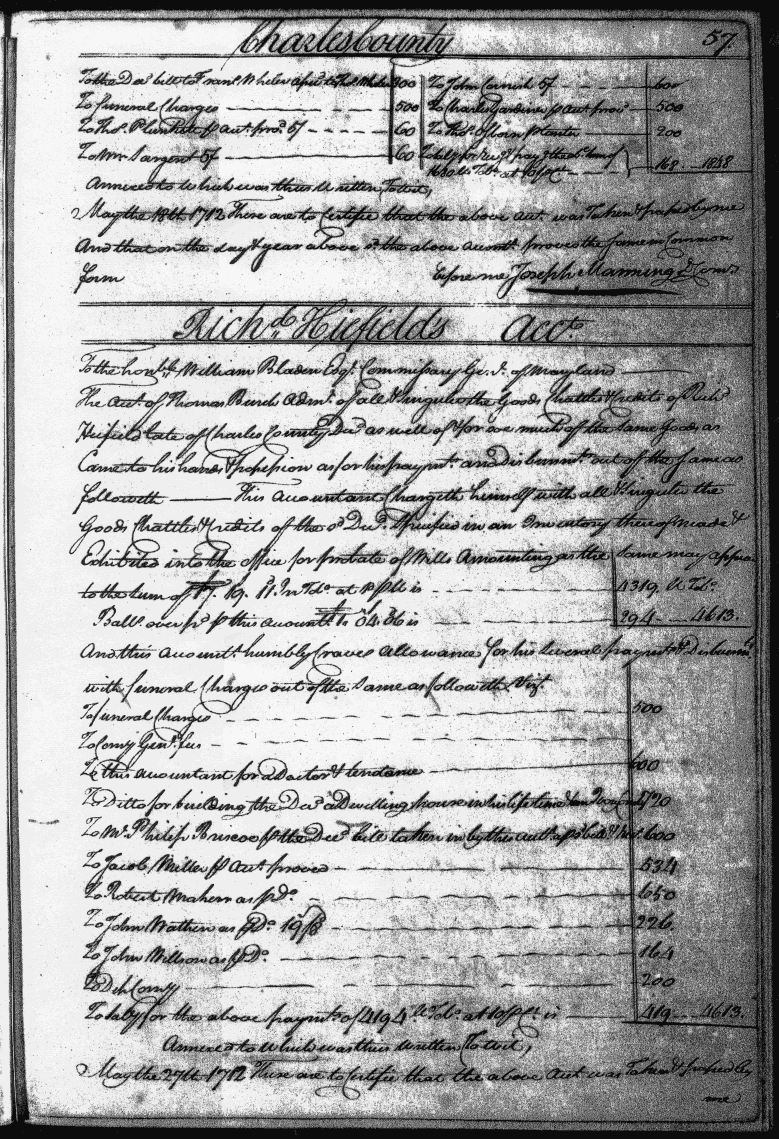 Charles County 57.
To the Decd bill to Fran. Whelen 300
To funeral Charges 500
To Tho. Plunkett p acct prod 57 60
To Mr Sargent 57 60
To John Cornish 57 600
To Charles Gardiner p acct prov 500
To Tho. osborn planter 200
To Sally for the payt of 1680 lb Tobo at 10 p Ct 168 1848
Annexed to which was thus Written, To wit,
May the 18th 1712 These are to Certifie that the above Acct was Taken & passed by me
And that on the day & year above sd the above accountt proved the same in Common
form before me Joseph Manning D Comry
Richd Hiefields Acct.
To the honble William Bladen Esqr. Commissary Genl. of Maryland
The Acct. of Thomas Burch Admr. of all & singular the Goods Chattles & Credits of Richd
Heifield late of Charles County Decd as well of & for so much of the same Goods as
Came to his hands & possession as for his paymts. and disburmts. out of the same as
followeth This accountant Chargeth himself with all & singular the
Goods Chattles & Credits of the sd Decd. Specified in an Inventory thereof made &
Exhibited into the office for probate of Wills Amounting as the same may appear
to the sum of 19. 11. In Tobo. at 1d p lb is 4319. lb Tobo.
Ball. over pd p this accountt. is 294 4613.
And this accountt. humbly Craves allowance for his several paymts & Disburmts
with funeral Charges out of the same as followeth Vizt.
To funeral Charges 500
To Comry Genls. fees
To this accountant for a Doctor & tendance 600
To Ditto for building the Decd a Dwelling house in his life time 720
To Mr. Philip Briscoe p the Decd bill taken in by this acct. 600
To Jacob Miller p Acct proved 534
To Robert Mahern as p Do. 650
To John Wathen as p Do. 226.
To John Willson as p Do. 164
To D Comry 200
To Sally for the above paymts of 4194 lb Tobo. at 10 p Ct. is 419 4613.
Annexed to which was thus written, To wit,
May the 27th 1712 These are to Certifie that the above Acct was Taken & passed by
me